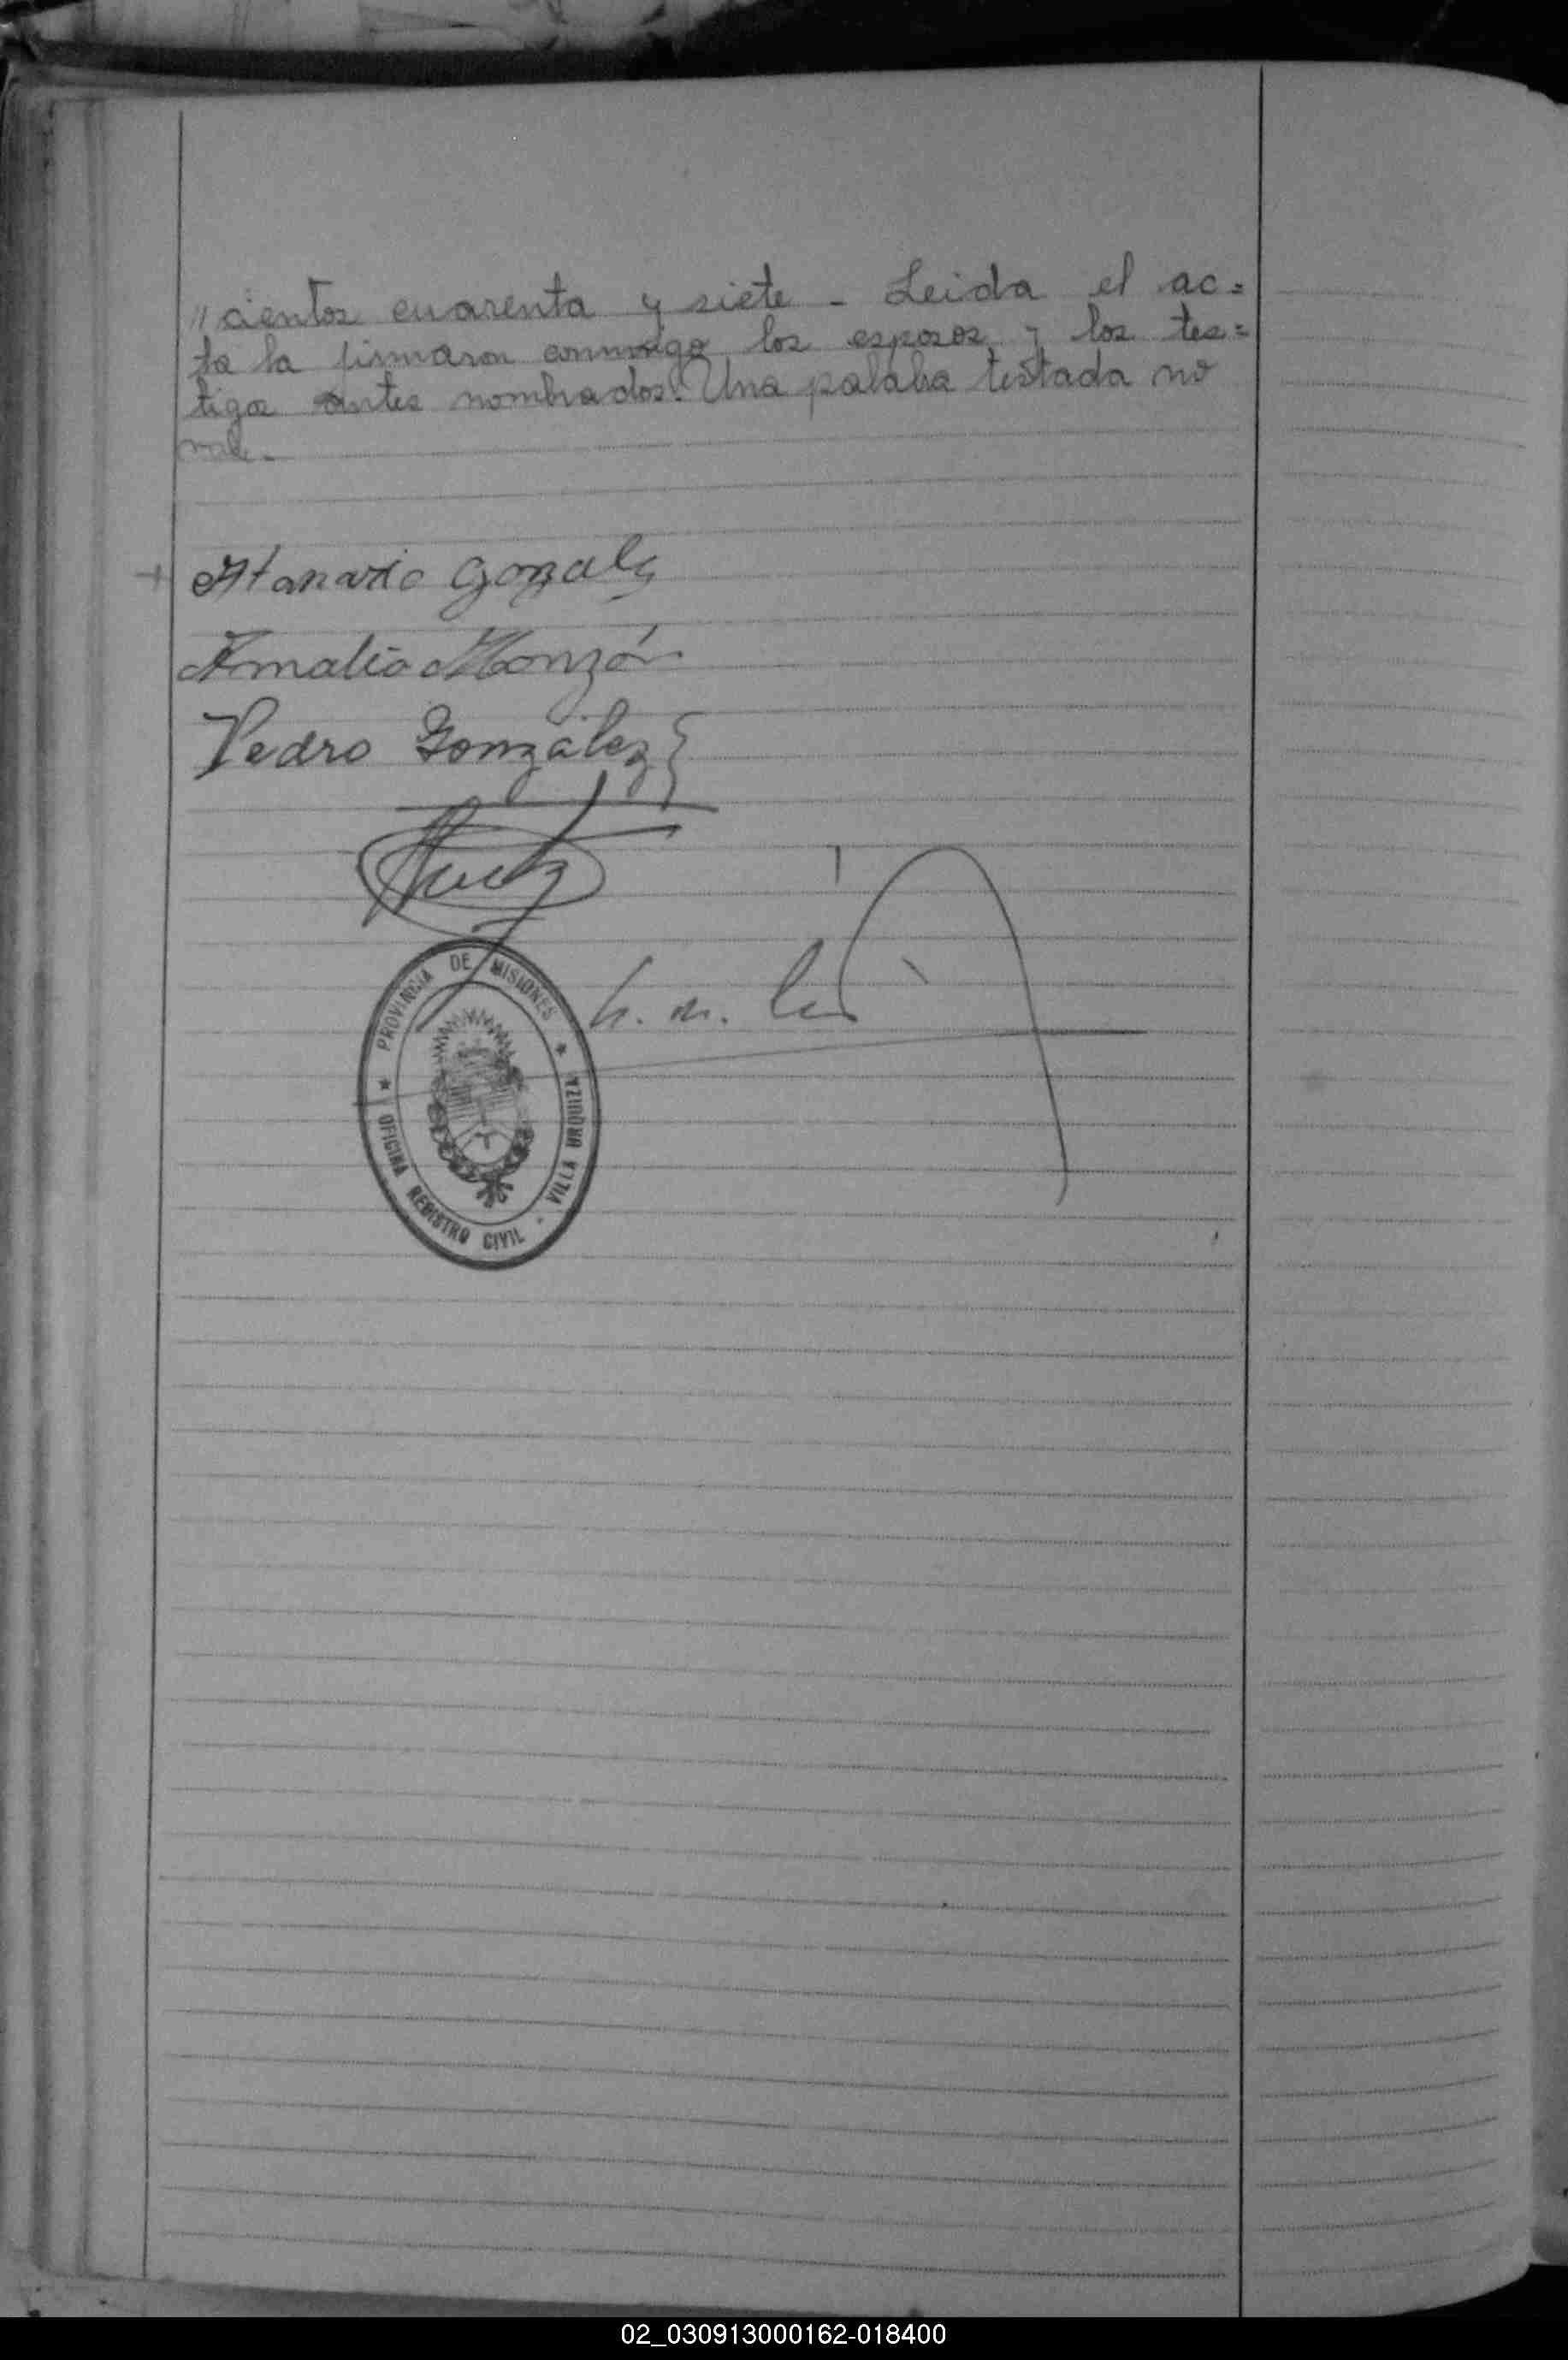 "cientos cuarenta y siete - Leida el ac=
ta la firmaron conmigo los esposos y los tes=
tigos antes nombrados. Una palaba testada no
vale.-
Atanacio Gonzalez
Amalia Monzón
Pedro González
PROVINCIA DE MISIONES
OFICINA REGISTRO CIVIL - VILLA URQUIZA
02_030913000162-018400